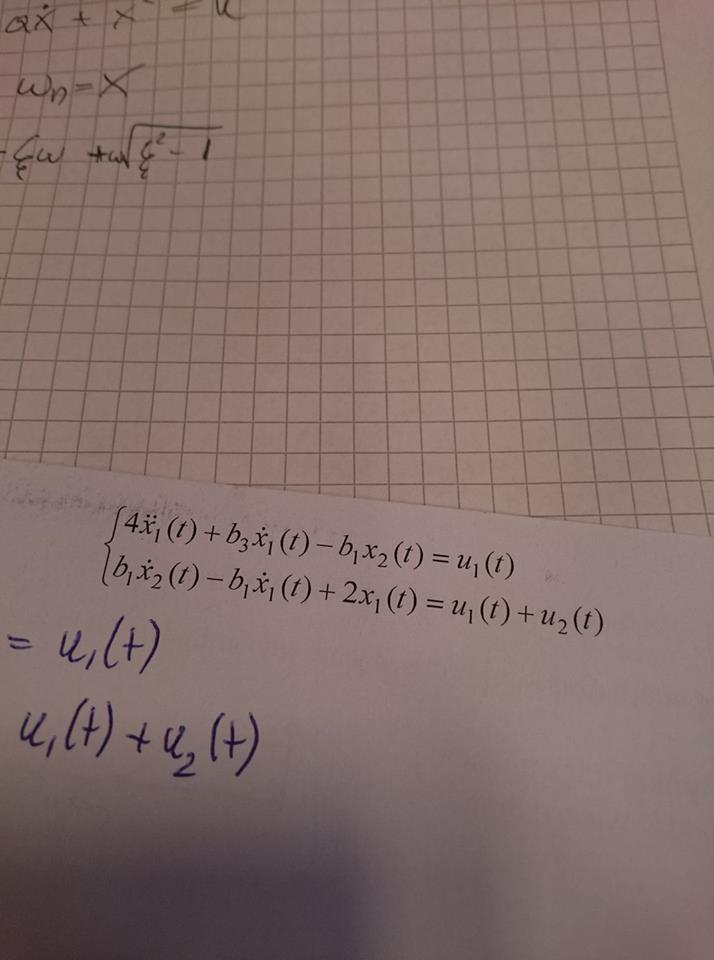 aẋ + x = u
ωn = X
-ξω + ω√ξ² - 1
{4ẍ₁(t) + b₃ẋ₁(t) − b₁x₂(t) = u₁(t)
b₁ẋ₂(t) − b₁ẋ₁(t) + 2x₁(t) = u₁(t) + u₂(t)
= u₁(t)
u₁(t) + u₂(t)